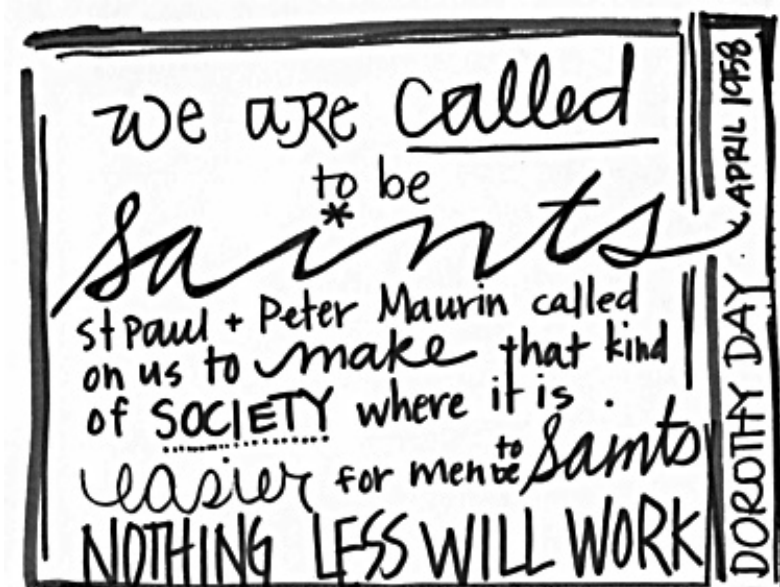 we are called
to be
saints
st paul + Peter Maurin called
on us to make that kind
of SOCIETY where it is
easier for men to be saints
NOTHING LESS WILL WORK
DOROTHY DAY. APRIL 1958